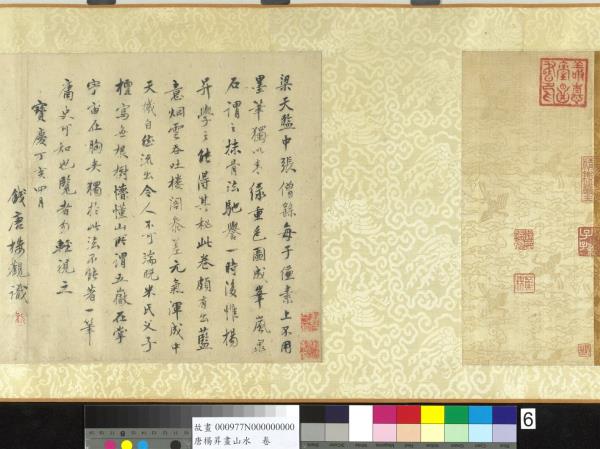 梁天監中張僧繇每于縑素上不用
墨筆獨以青綠重色圖成峯嵐泉
石謂之抹骨法馳譽一時後惟楊
昇學之能得其秘此卷頗有出藍
意烟雲吞吐樓閣參差元氣渾成中
天機自然流出令人不可端睨米氏父子
擅寫無根樹懵懂山所謂五嶽在掌
宇宙在胸矣獨於此法不能著一筆
庸史可知也覽者勿輕視之
寶慶丁亥四月
錢唐樓觀識
故畫 000977N000000000
唐楊昇畫山水 卷
6